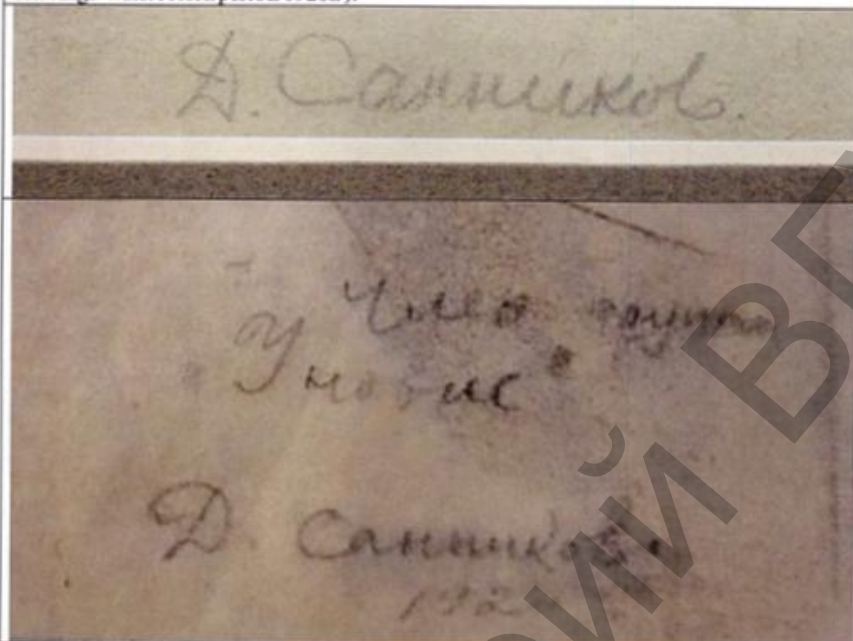 Д. Санников.
Член группы
"Уновис"
Д. Санников
192